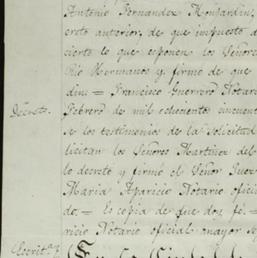 Antonio Fernandez Monjardin,
creto anterior, de que impuesto d
cierto lo que esponen los Señores
Rio Hermanos y firmo de que
din = Francisco Guerrero Notar
Decreto.
Febrero de mil ochocientos cincuent
se los testimonios de la solicitud
licitan los Señores Martinez del
lo decretó y firmó el Señor Juez
Maria Aparicio Notario ofici
do. = Es copia de que doy fé =
ricio Notario oficial mayor
Escrit.ª